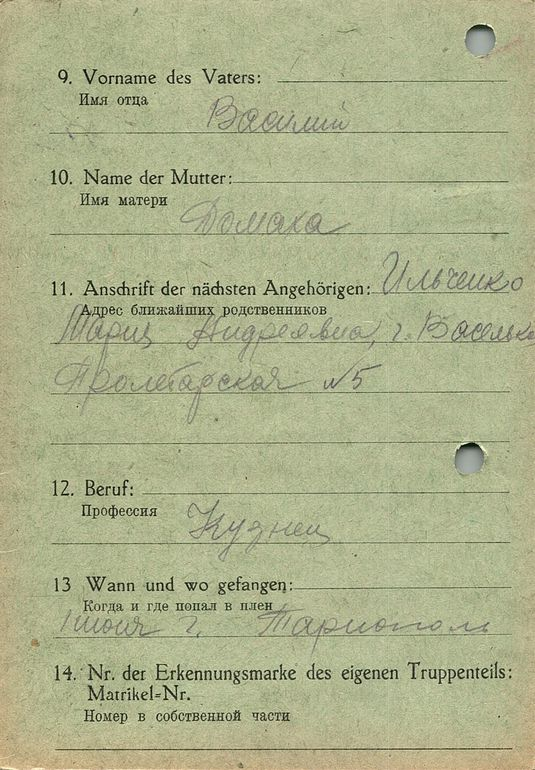 9. Vorname des Vaters:
Имя отца
Василий
10. Name der Mutter:
Имя матери
Домаха
11. Anschrift der nächsten Angehörigen: Ильченко
Адрес ближайших родственников
Мария Андреевна, г. Василько
Пролетарская №5
12. Beruf:
Профессия
Кузнец
13 Wann und wo gefangen:
Когда и где попал в плен
г. Тарнополь
14. Nr. der Erkennungsmarke des eigenen Truppenteils:
Matrikel=Nr.
Номер в собственной части